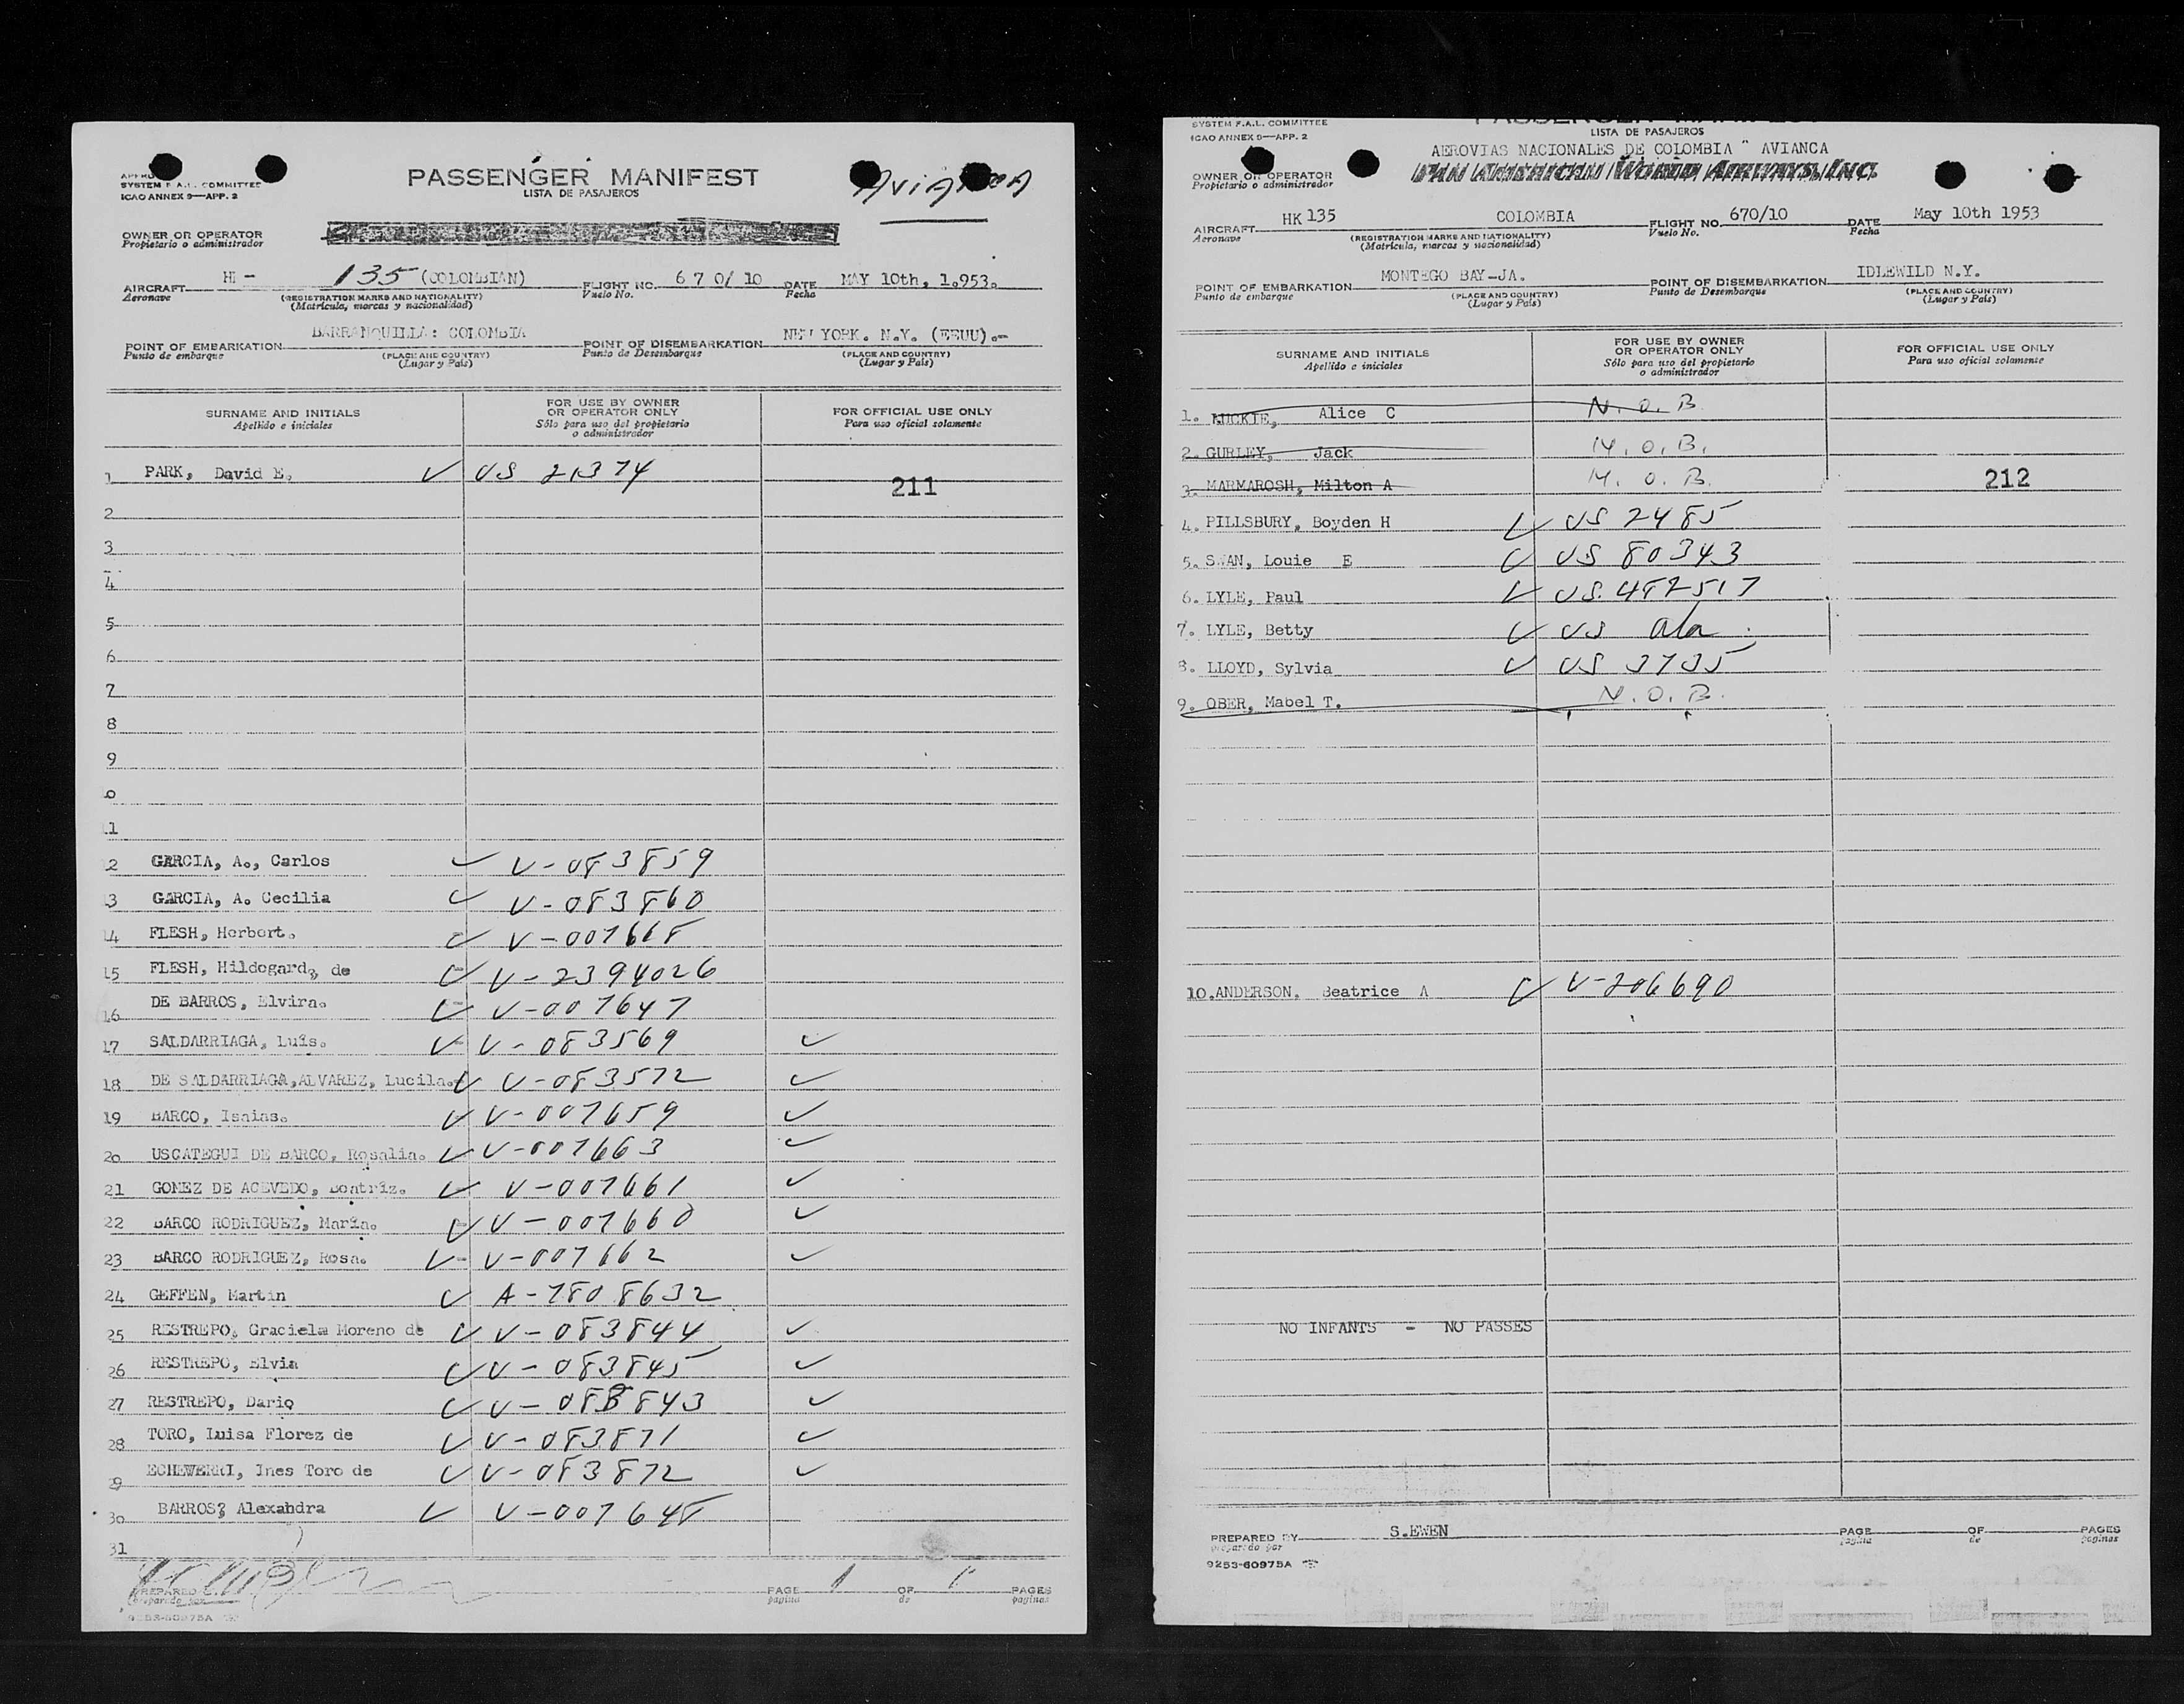 PASSENGER MANIFEST
LISTA DE PASAJEROS
SYSTEM F.A.L. COMMITTEE
ICAO ANNEX 9—APP. 2
OWNER OR OPERATOR
Propietario o administrador
AIRCRAFT HI- 135 (COLOMBIAN) FLIGHT NO. 670/10 DATE MAY 10th, 1.953.
Aeronave (REGISTRATION MARKS AND NATIONALITY) Vuelo No. Fecha
(Matrícula, marcas y nacionalidad)
BARRANQUILLA: COLOMBIA NEW YORK. N.Y. (EEUU).-
POINT OF EMBARKATION POINT OF DISEMBARKATION
Punto de embarque (PLACE AND COUNTRY) Punto de Desembarque (PLACE AND COUNTRY)
(Lugar y País) (Lugar y País)
SURNAME AND INITIALS FOR USE BY OWNER OR OPERATOR ONLY FOR OFFICIAL USE ONLY
Apellido e iniciales Sólo para uso del propietario o administrador Para uso oficial solamente
1 PARK, David E. ✓ US 21374
211
2
3
4
5
6
7
8
9
0
11
2 GARCIA, A., Carlos ✓ V-083859
3 GARCIA, A. Cecilia ✓ V-083860
14 FLESH, Herbert. ✓ V-007668
15 FLESH, Hildegard, de ✓ V-2394026
16 DE BARROS, Elvira. ✓ V-007647
17 SALDARRIAGA, Luis. ✓ V-083569 ✓
18 DE SALDARRIAGA,ALVAREZ, Lucila. ✓ V-083572 ✓
19 BARCO, Isaias. ✓ V-007659 ✓
20 USCATEGUI DE BARCO, Rosalia. ✓ V-007663 ✓
21 GOMEZ DE ACEVEDO, Beatriz. ✓ V-007661 ✓
22 BARCO RODRIGUEZ, María. ✓ V-007660 ✓
23 BARCO RODRIGUEZ, Rosa. ✓ V-007662 ✓
24 GEFFEN, Martin ✓ A-7808632
25 RESTREPO, Graciela Moreno de ✓ V-083844 ✓
26 RESTREPO, Elvia ✓ V-083845 ✓
27 RESTREPO, Dario ✓ V-083843 ✓
28 TORO, Luisa Florez de ✓ V-083871 ✓
29 ECHEVERRI, Ines Toro de ✓ V-083872 ✓
30 BARROS, Alexandra ✓ V-007648
31
PREPARED
preparado por PAGE 1 OF 1 PAGES
página de páginas
9253-60975A
SYSTEM F.A.L. COMMITTEE
PASSENGER MANIFEST
LISTA DE PASAJEROS
ICAO ANNEX 9—APP. 2
AEROVIAS NACIONALES DE COLOMBIA " AVIANCA
OWNER OR OPERATOR PAN AMERICAN WORLD AIRWAYS, INC.
Propietario o administrador
AIRCRAFT HK 135 COLOMBIA FLIGHT NO. 670/10 DATE May 10th 1953
Aeronave (REGISTRATION MARKS AND NATIONALITY) Vuelo No. Fecha
(Matrícula, marcas y nacionalidad)
POINT OF EMBARKATION MONTEGO BAY-JA. POINT OF DISEMBARKATION IDLEWILD N.Y.
Punto de embarque (PLACE AND COUNTRY) Punto de Desembarque (PLACE AND COUNTRY)
(Lugar y País) (Lugar y País)
SURNAME AND INITIALS FOR USE BY OWNER OR OPERATOR ONLY FOR OFFICIAL USE ONLY
Apellido e iniciales Sólo para uso del propietario o administrador Para uso oficial solamente
1. Alice C N.O.B
2. GURLEY, Jack N.O.B.
3. MARMAROSH, Milton A N.O.B. 212
4. PILLSBURY, Boyden H ✓ US 2485
5. SWAN, Louie E ✓ US 80343
6. LYLE, Paul ✓ US. 482517
7. LYLE, Betty ✓ US ala
8. LLOYD, Sylvia ✓ US 3735
9. OBER, Mabel T. N.O.B.
10. ANDERSON, Beatrice A ✓ V-206690
NO INFANTS - NO PASSES
PREPARED BY S.EWEN PAGE OF PAGES
preparado por página de páginas
9253-60975A